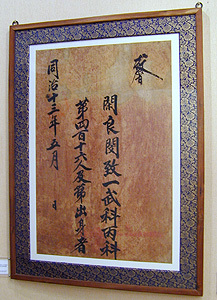 閑良閔致一武科丙科
第四百十六人及第出身者
同治十三年五月 日